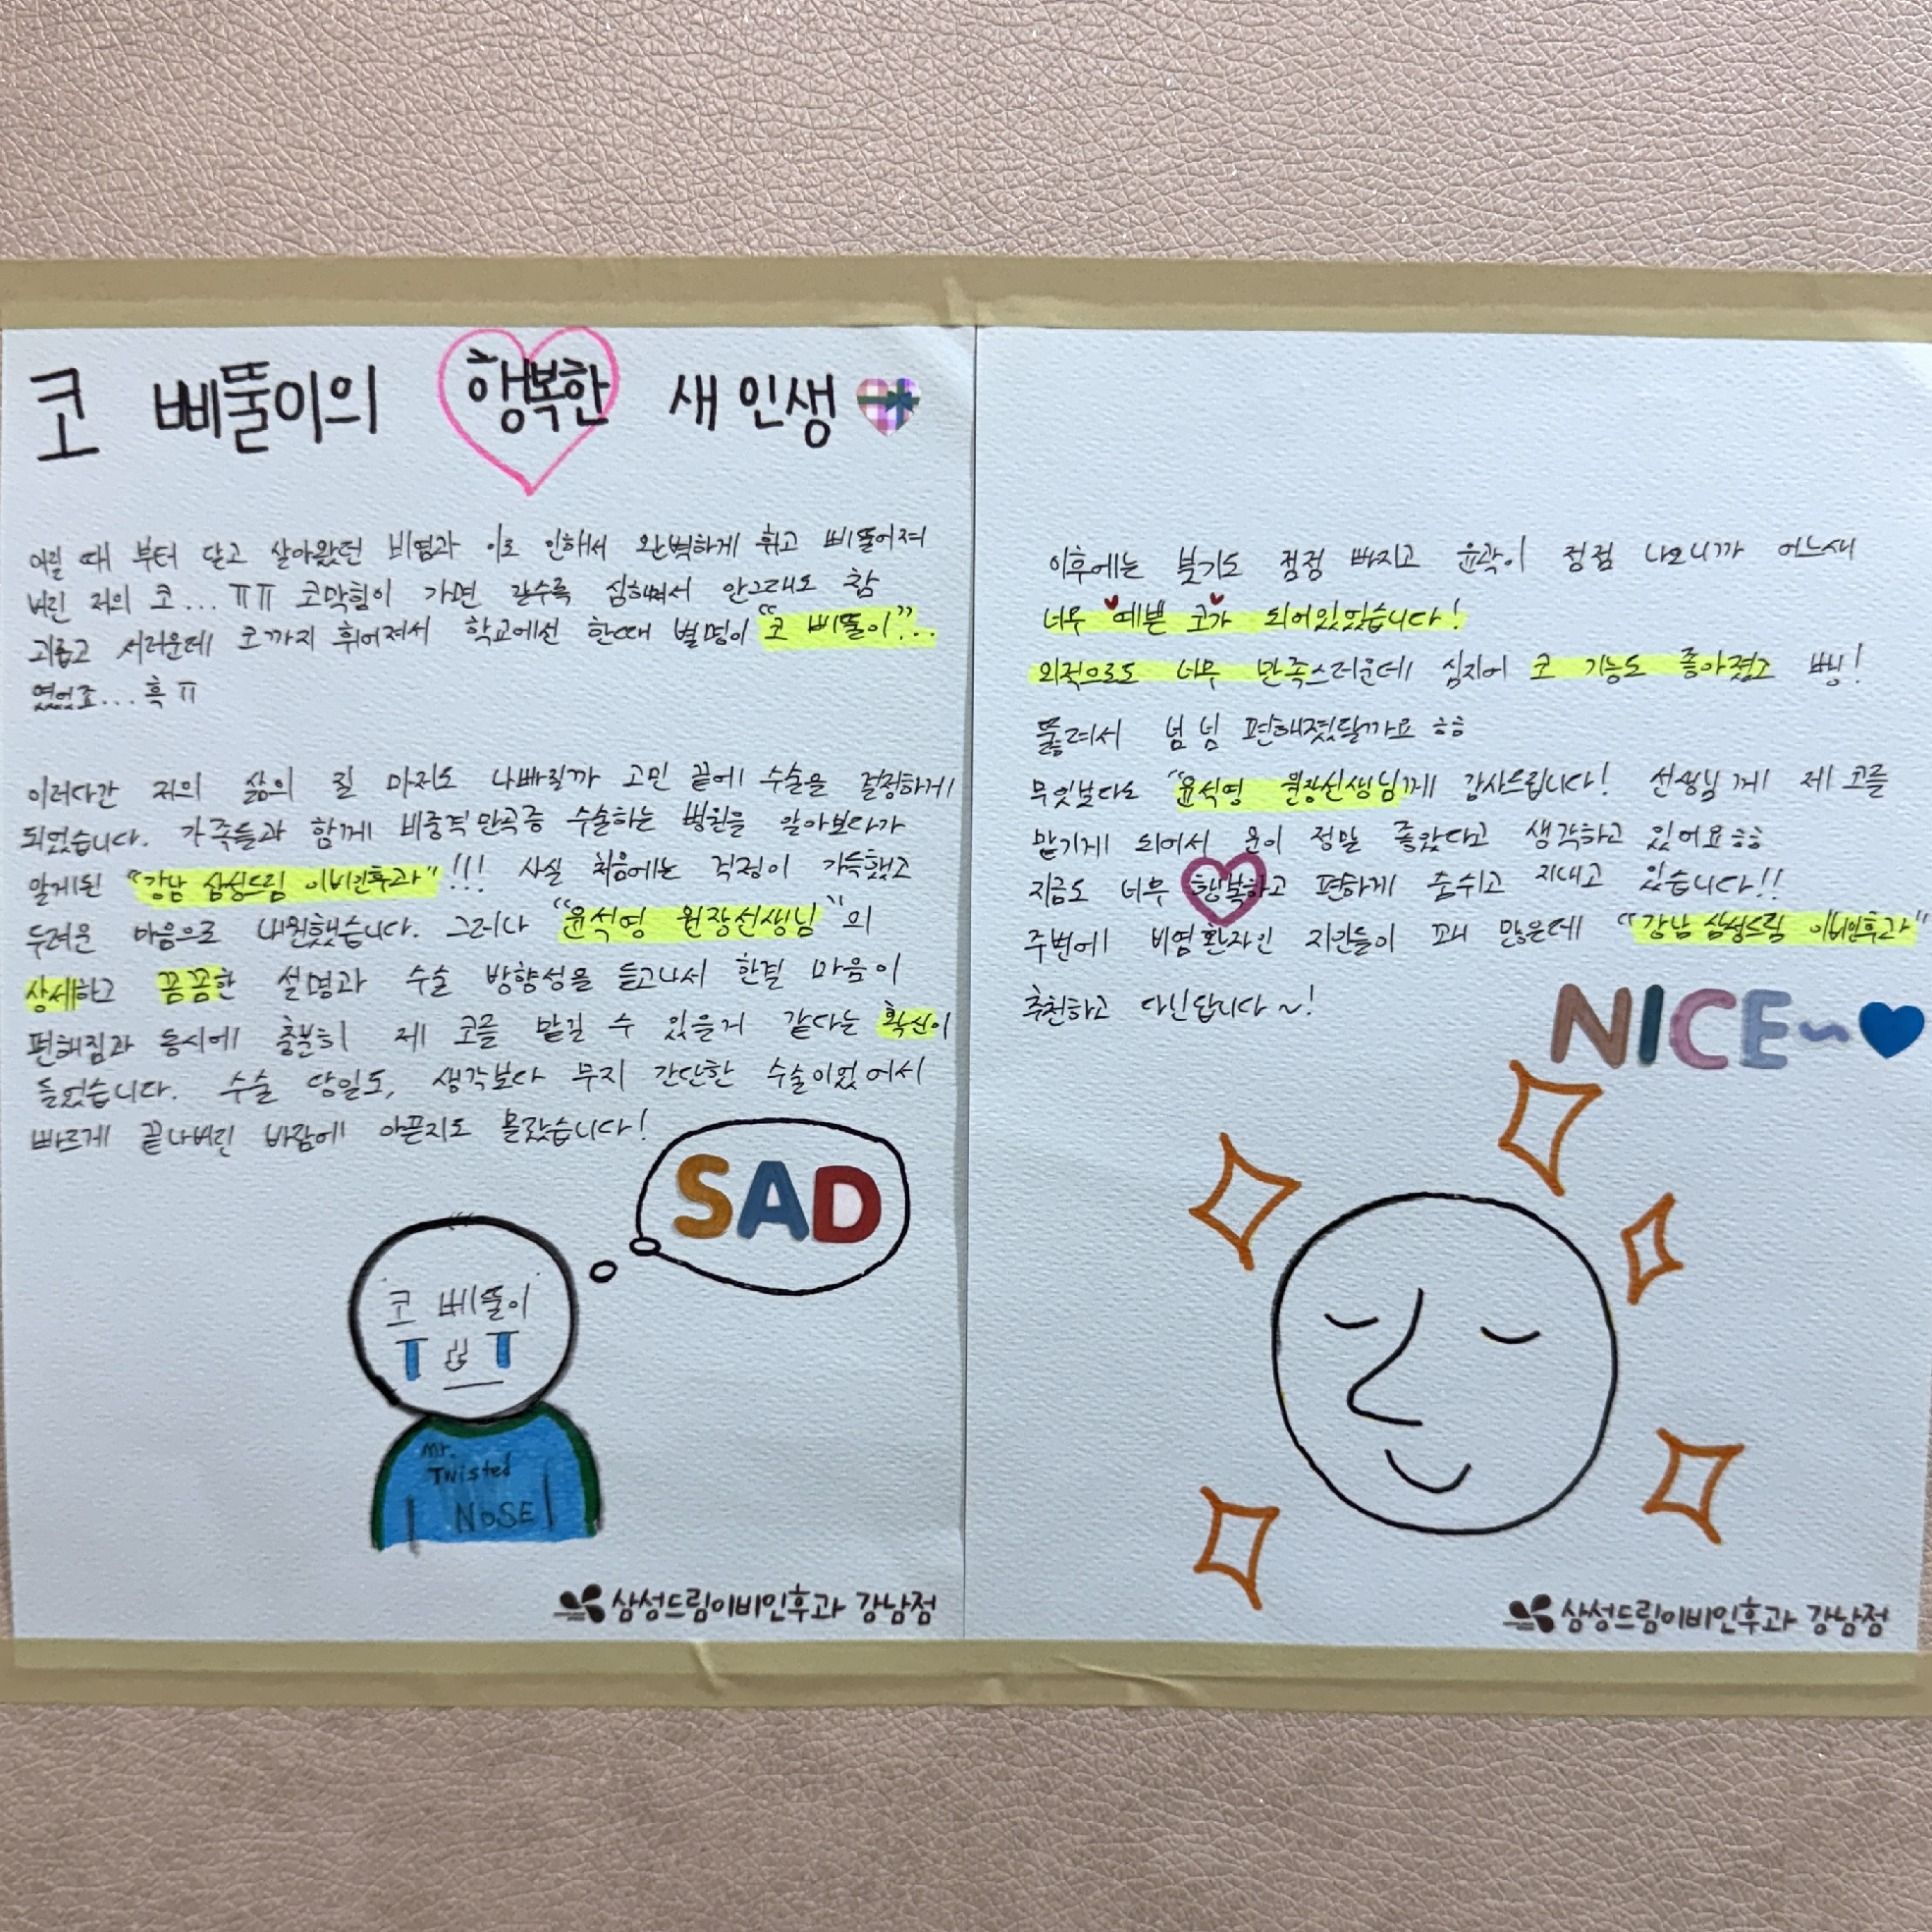 코 삐뚤이의 행복한 새 인생
어릴 때 부터 달고 살아왔던 비염과 이로 인해서 완벽하게 휘고 삐뚤어져
버린 저의 코... ㅠㅠ 코막힘이 가면 갈수록 심해져서 안그래도 참
괴롭고 서러운데 코까지 휘어져서 학교에선 한때 별명이 "코 삐뚤이"..
였었죠... 흑 ㅠ
이러다간 저의 삶의 질 마저도 나빠질까 고민 끝에 수술을 결정하게
되었습니다. 가족들과 함께 비중격만곡증 수술하는 병원을 알아보다가
알게된 "강남 삼성드림 이비인후과"!!! 사실 처음에는 걱정이 가득했고
두려운 마음으로 내원했습니다. 그러나 "윤석영 원장선생님"의
상세하고 꼼꼼한 설명과 수술 방향성을 듣고나서 한결 마음이
편해짐과 동시에 충분히 제 코를 맡길 수 있을거 같다는 확신이
들었습니다. 수술 당일도, 생각보다 무지 간단한 수술이었어서
빠르게 끝나버린 바람에 아픈지도 몰랐습니다!
SAD
코 삐뚤이
Mr.
Twisted
NOSE
삼성드림이비인후과 강남점
이후에는 붓기도 점점 빠지고 윤곽이 점점 나오니까 어느새
너무 예쁜 코가 되어있었습니다!
외적으로도 너무 만족스러운데 심지어 코 기능도 좋아졌고 뻥!
뚫려서 넘 넘 편해졌달까요 ㅎㅎ
무엇보다도 "윤석영 원장선생님께 감사드립니다! 선생님께 제 코를
맡기게 되어서 운이 정말 좋았다고 생각하고 있어요ㅎㅎ
지금도 너무 행복하고 편하게 숨쉬고 지내고 있습니다!!
주변에 비염환자인 지인들이 꽤 많은데 "강남 삼성드림 이비인후과"
추천하고 다닌답니다~!
NICE~
삼성드림이비인후과 강남점